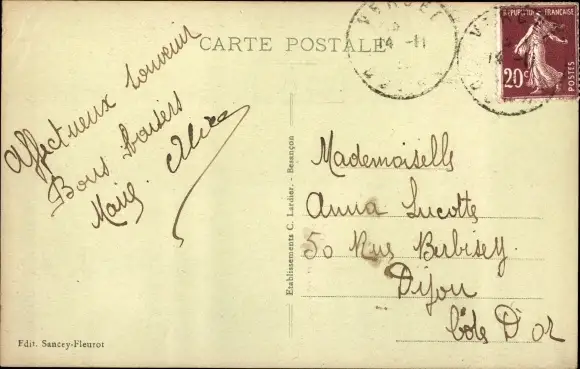 CARTE POSTALE
VERCEL
14 -11
RÉPUBLIQUE FRANÇAISE
20c
POSTES
Affectueux souvenir
Bons baisers
Marie. Alice
Mademoiselle
Anna Lucotte
50 Rue Berbisey.
Dijon
Côte D'or
Etablissements C. Lardier. - Besançon
Edit. Sancey-Fleurot